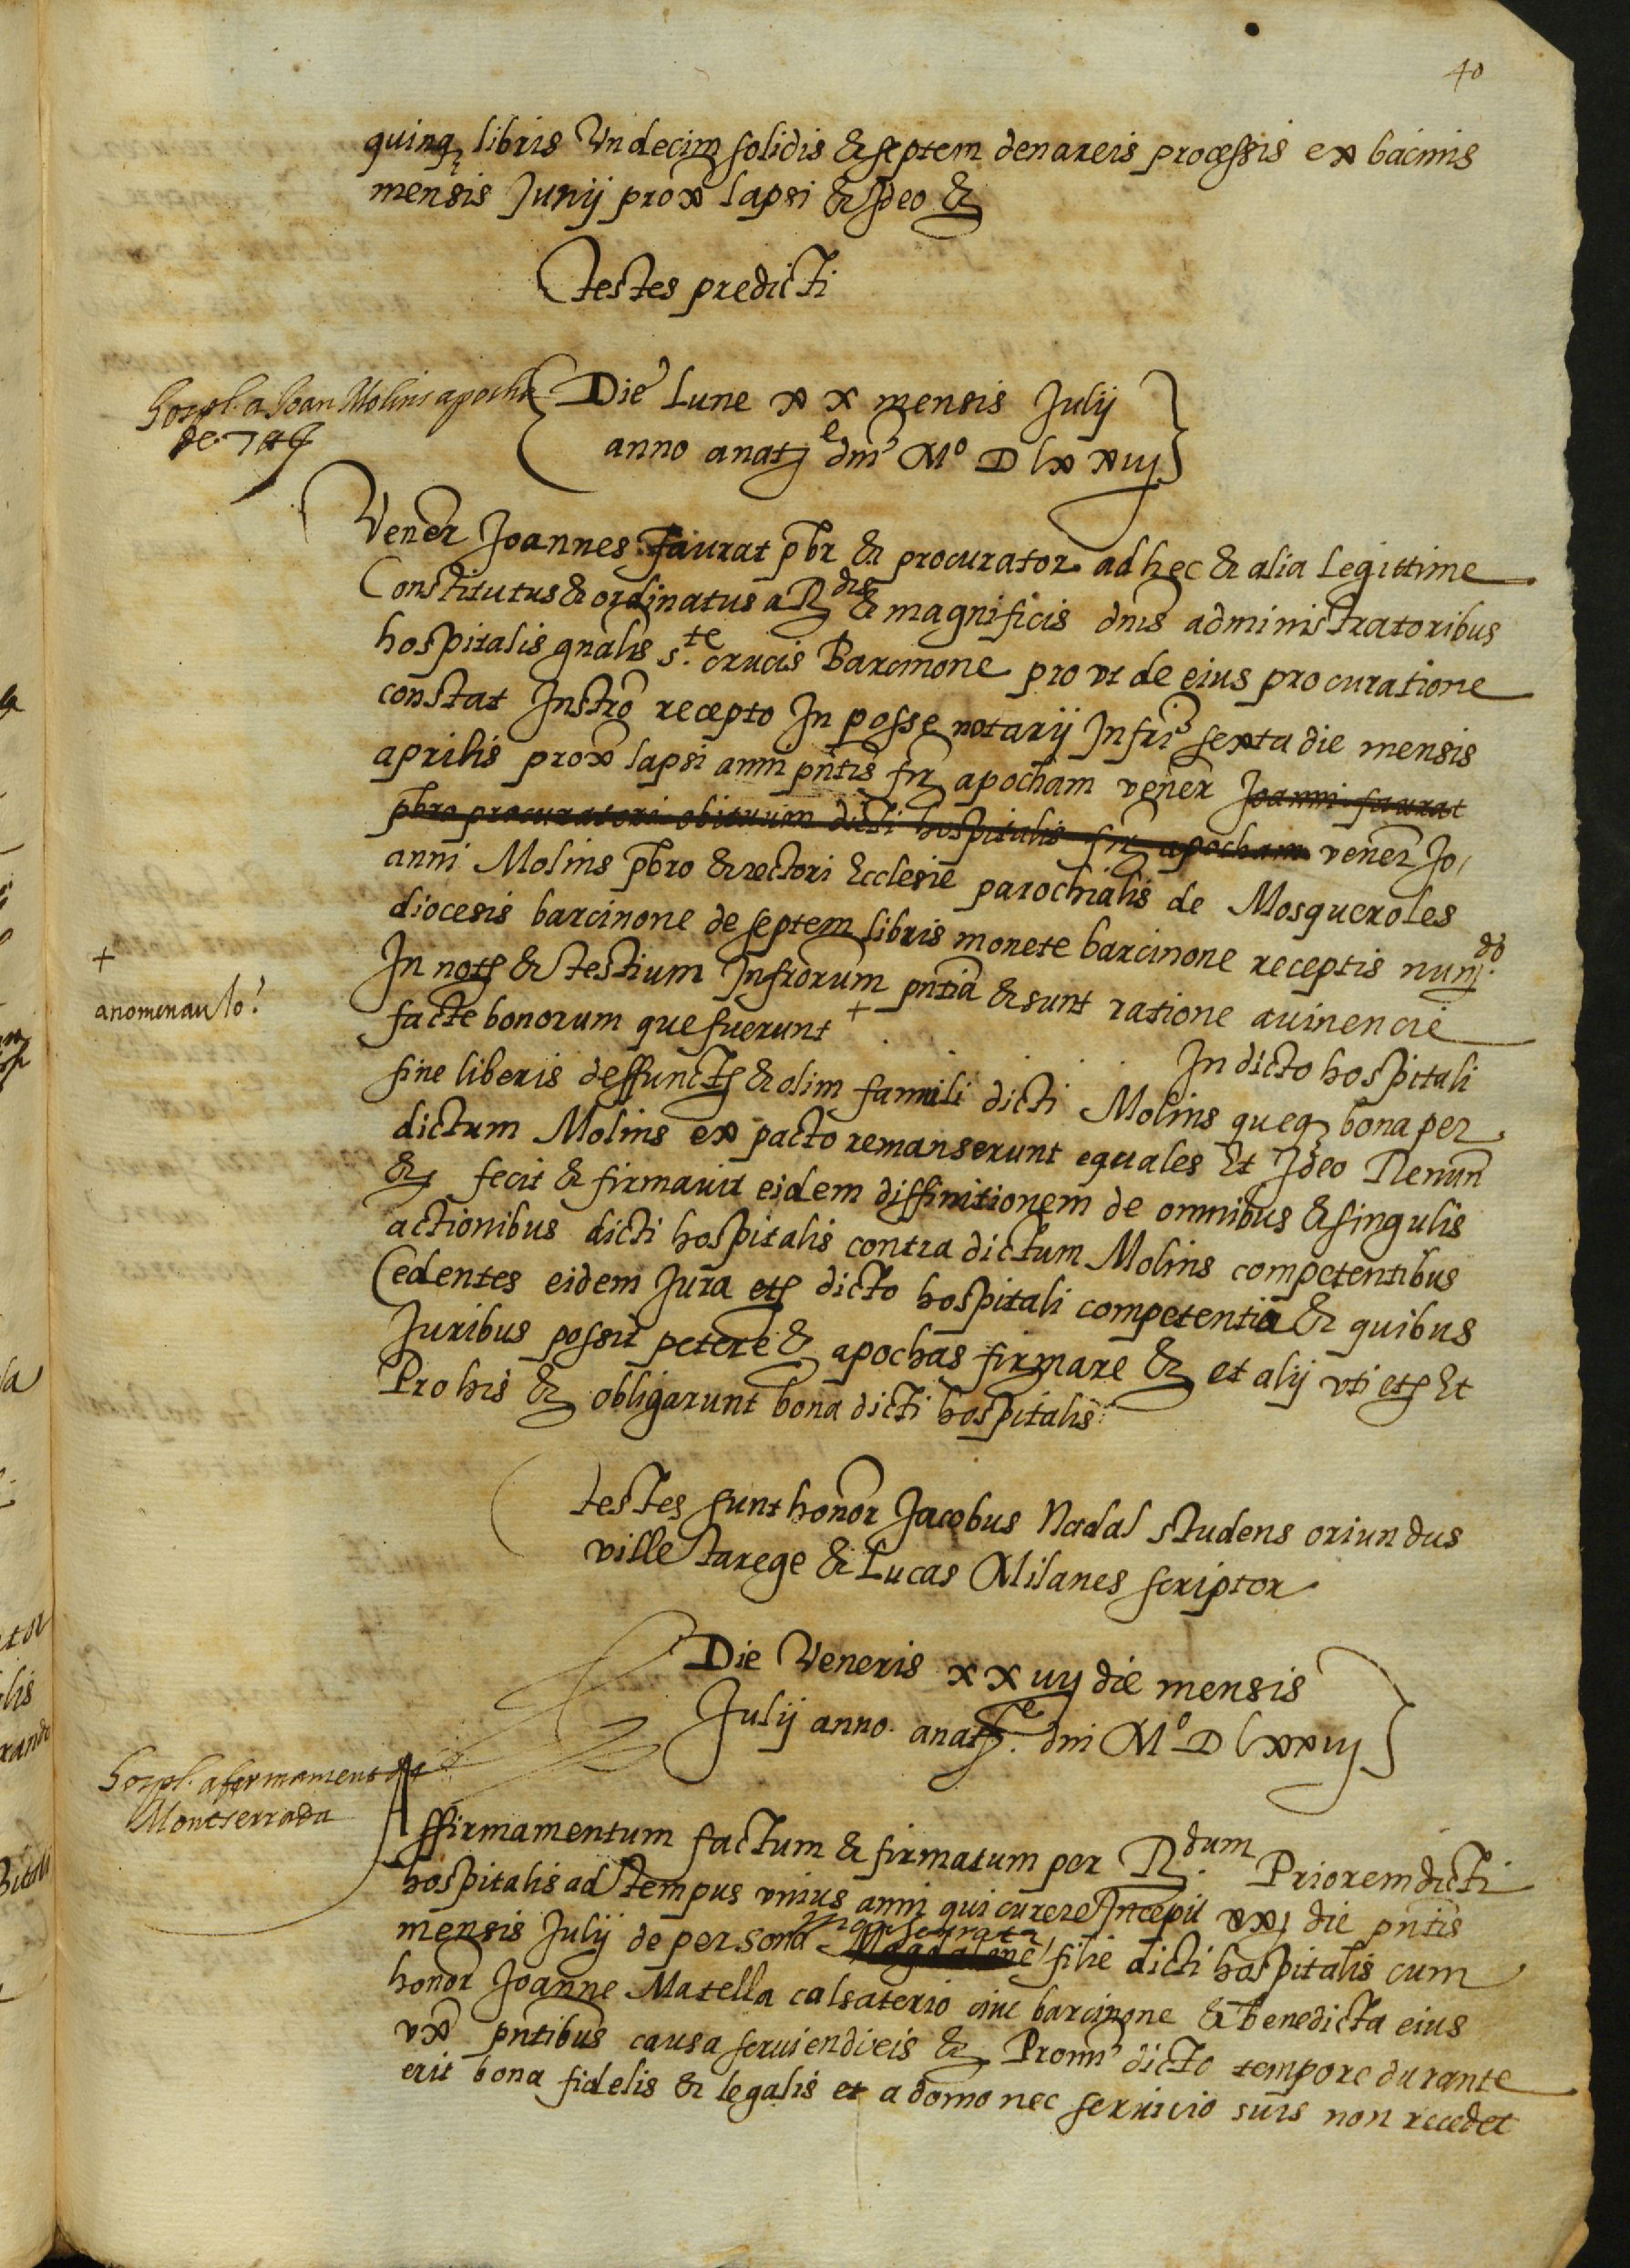 40
quinq libris Undecim solidis & septem denareis processis ex bacinis
mensis Junij prox lapsi & Ideo &
testes predicti
Hospl. a Joan Molins apocha
de 7 ll
Die Lune xx mensis Julij
anno a natе dni Mº D lxxiij
Vener Joannes Faurat pbr & procurator ad hec & alia Legittime
Constitutus & ordinatus a Rdis & magnificis dnis administratoribus
hospitalis gnalis s.te crucis Barcinone pro vt de eius procuratione
constat Instro recepto In posse notarij Infri sexta die mensis
aprilis prox lapsi anni pntis fir apocham vener Joanni faurat
pbro procuratori obituum dicti hospitalis fir apocham vener Jo
anni Molins pbro & rectori Ecclesie parochialis de Mosqueroles
diocesis barcinone de septem libris monete barcinone receptis nundo
In not & testium Infrorum pntia & sunt ratione auinencie
+
anomenau lo
facte bonorum que fuerunt + In dicto hospitali
sine liberis deffuncti & olim famili dicti Molins queq bona per
dictum Molins ex pacto remanserunt equales Et Ideo Renun
& fecit & firmauit eidem diffinitionem de omnibus & singulis
actionibus dicti hospitalis contra dictum Molins competentibus
Cedentes eidem Jura etc dicto hospitali competentia & quibus
Juribus possit petere & apochas firmare & et alij vti etc Et
Pro his & obligarunt bona dicti hospitalis
testes sunt honor Jacobus Nadal studens oriundus
ville tarege & Lucas Milanes scriptor
Die Veneris xxiiij die mensis
Julij anno a nate dni Mº D lxxiij
Hospl. afermament de
Montserrada
Affirmamentum factum & firmatum per Rdum Priorem dicti
hospitalis ad tempus vnius anni qui curere Incepit xxj die pntis
mensis Julij de persona Magdalene Monserrata filie dicti hospitalis cum
honor Joanne Matella calsaterio ciue barcinone & Benedicta eius
vx pntibus causa seruiendi eis & Promi dicto tempore durante
erit bona fidelis & legalis et a domo nec seruicio suis non recedet